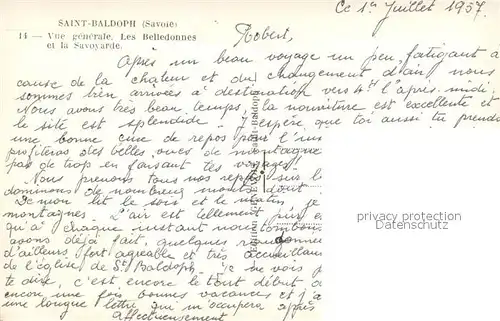 SAINT-BALDOPH (Savoie)
14 — Vue générale. Les Belledonnes
et la Savoyarde.
Ce 1er Juillet 1957.
Robert,
Après un beau voyage un peu fatigant à
cause de la chaleur et du changement d'air, nous
sommes bien arrivées à destination vers 4h l'après-midi
Nous avons très beau temps, la nourriture est excellente et
le site est splendide. J'espère que toi aussi tu prends
une bonne cure de repos pour
profiteras des belles vues de montagne
pas de trop en faisant tes voyages!
Nous prenons tous nos repas sur la
dominons de nombreux monts dont
De mon lit le soir et le matin, je
montagnes. L'air est tellement pur
qu'à chaque instant nous tombons
avons déjà fait quelques randonnées
d'ailleurs fort agréable et très accueillant
de l'église de St Baldoph. Je ne vois
te dire, c'est encore le tout début
encore une fois bonnes vacances et
une longue lettre qui m'occupera après
Affectueusement
privacy protection